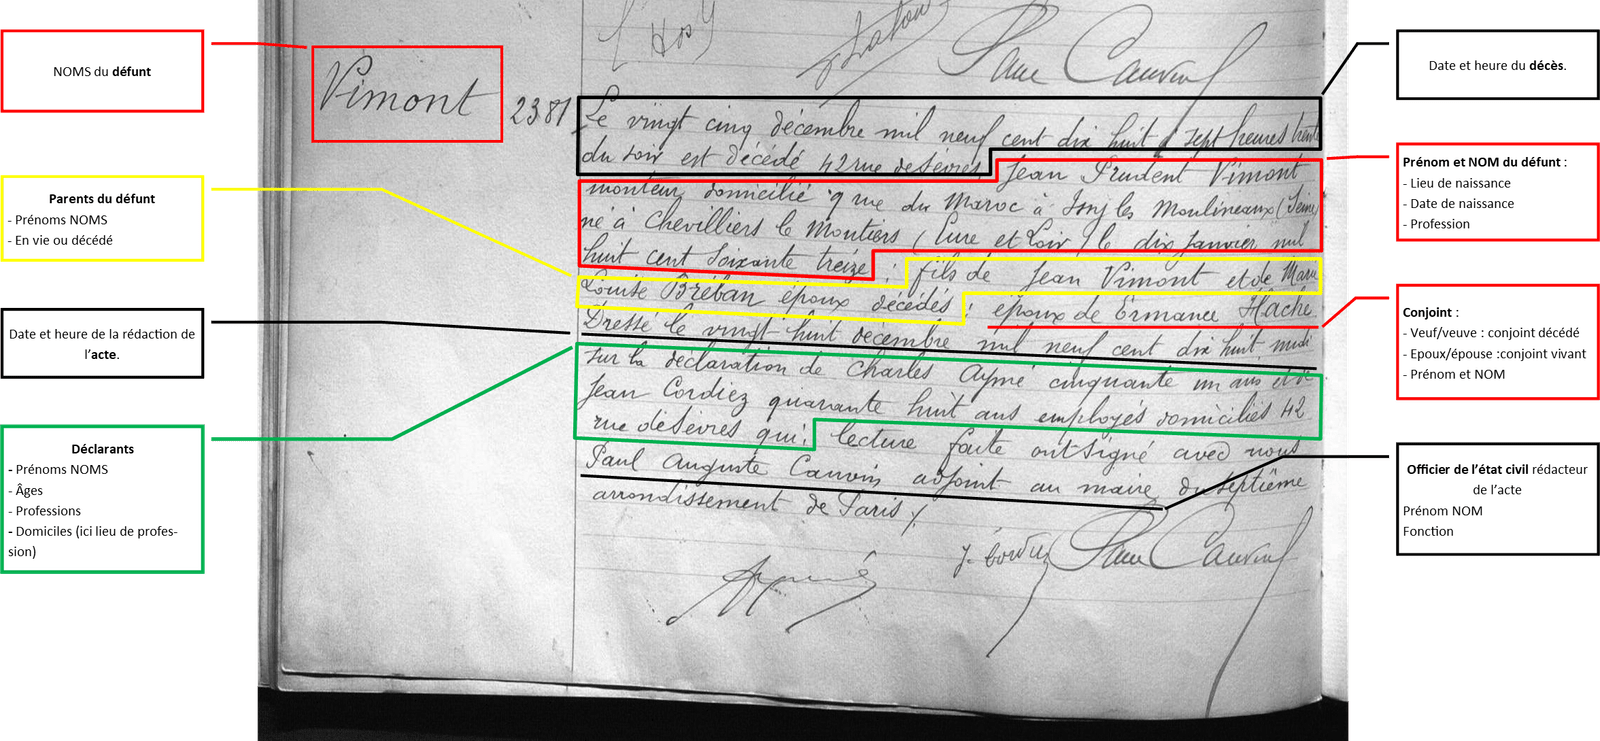 NOMS du défunt
Parents du défunt
- Prénoms NOMS
- En vie ou décédé
Date et heure de la rédaction de
l’acte.
Déclarants
- Prénoms NOMS
- Âges
- Professions
- Domiciles (ici lieu de profes-
sion)
Vimont
2381
Paul Cauvin
Le vingt cinq décembre mil neuf cent dix huit à sept heures trente
du soir est décédé 42 rue de Sèvres Jean Prudent Vimont
monteur domicilié 9 rue du Maroc à Issy les Moulineaux (Seine)
né à Chevilliers le Moutiers (Eure et Loir) le dix janvier mil
huit cent soixante treize ; fils de Jean Vimont et de Marie
Louise Bréban époux décédés ; époux de Ermance Hache
Dressé le vingt huit décembre mil neuf cent dix huit midi
sur la déclaration de Charles Aymé cinquante un ans et de
Jean Cordiez quarante huit ans employés domiciliés 42
rue de Sèvres qui, lecture faite ont signé avec nous
Paul Auguste Cauvin adjoint au maire du septième
arrondissement de Paris
Paul Cauvin
Date et heure du décès.
Prénom et NOM du défunt :
- Lieu de naissance
- Date de naissance
- Profession
Conjoint :
- Veuf/veuve : conjoint décédé
- Epoux/épouse :conjoint vivant
- Prénom et NOM
Officier de l’état civil rédacteur
de l’acte
Prénom NOM
Fonction